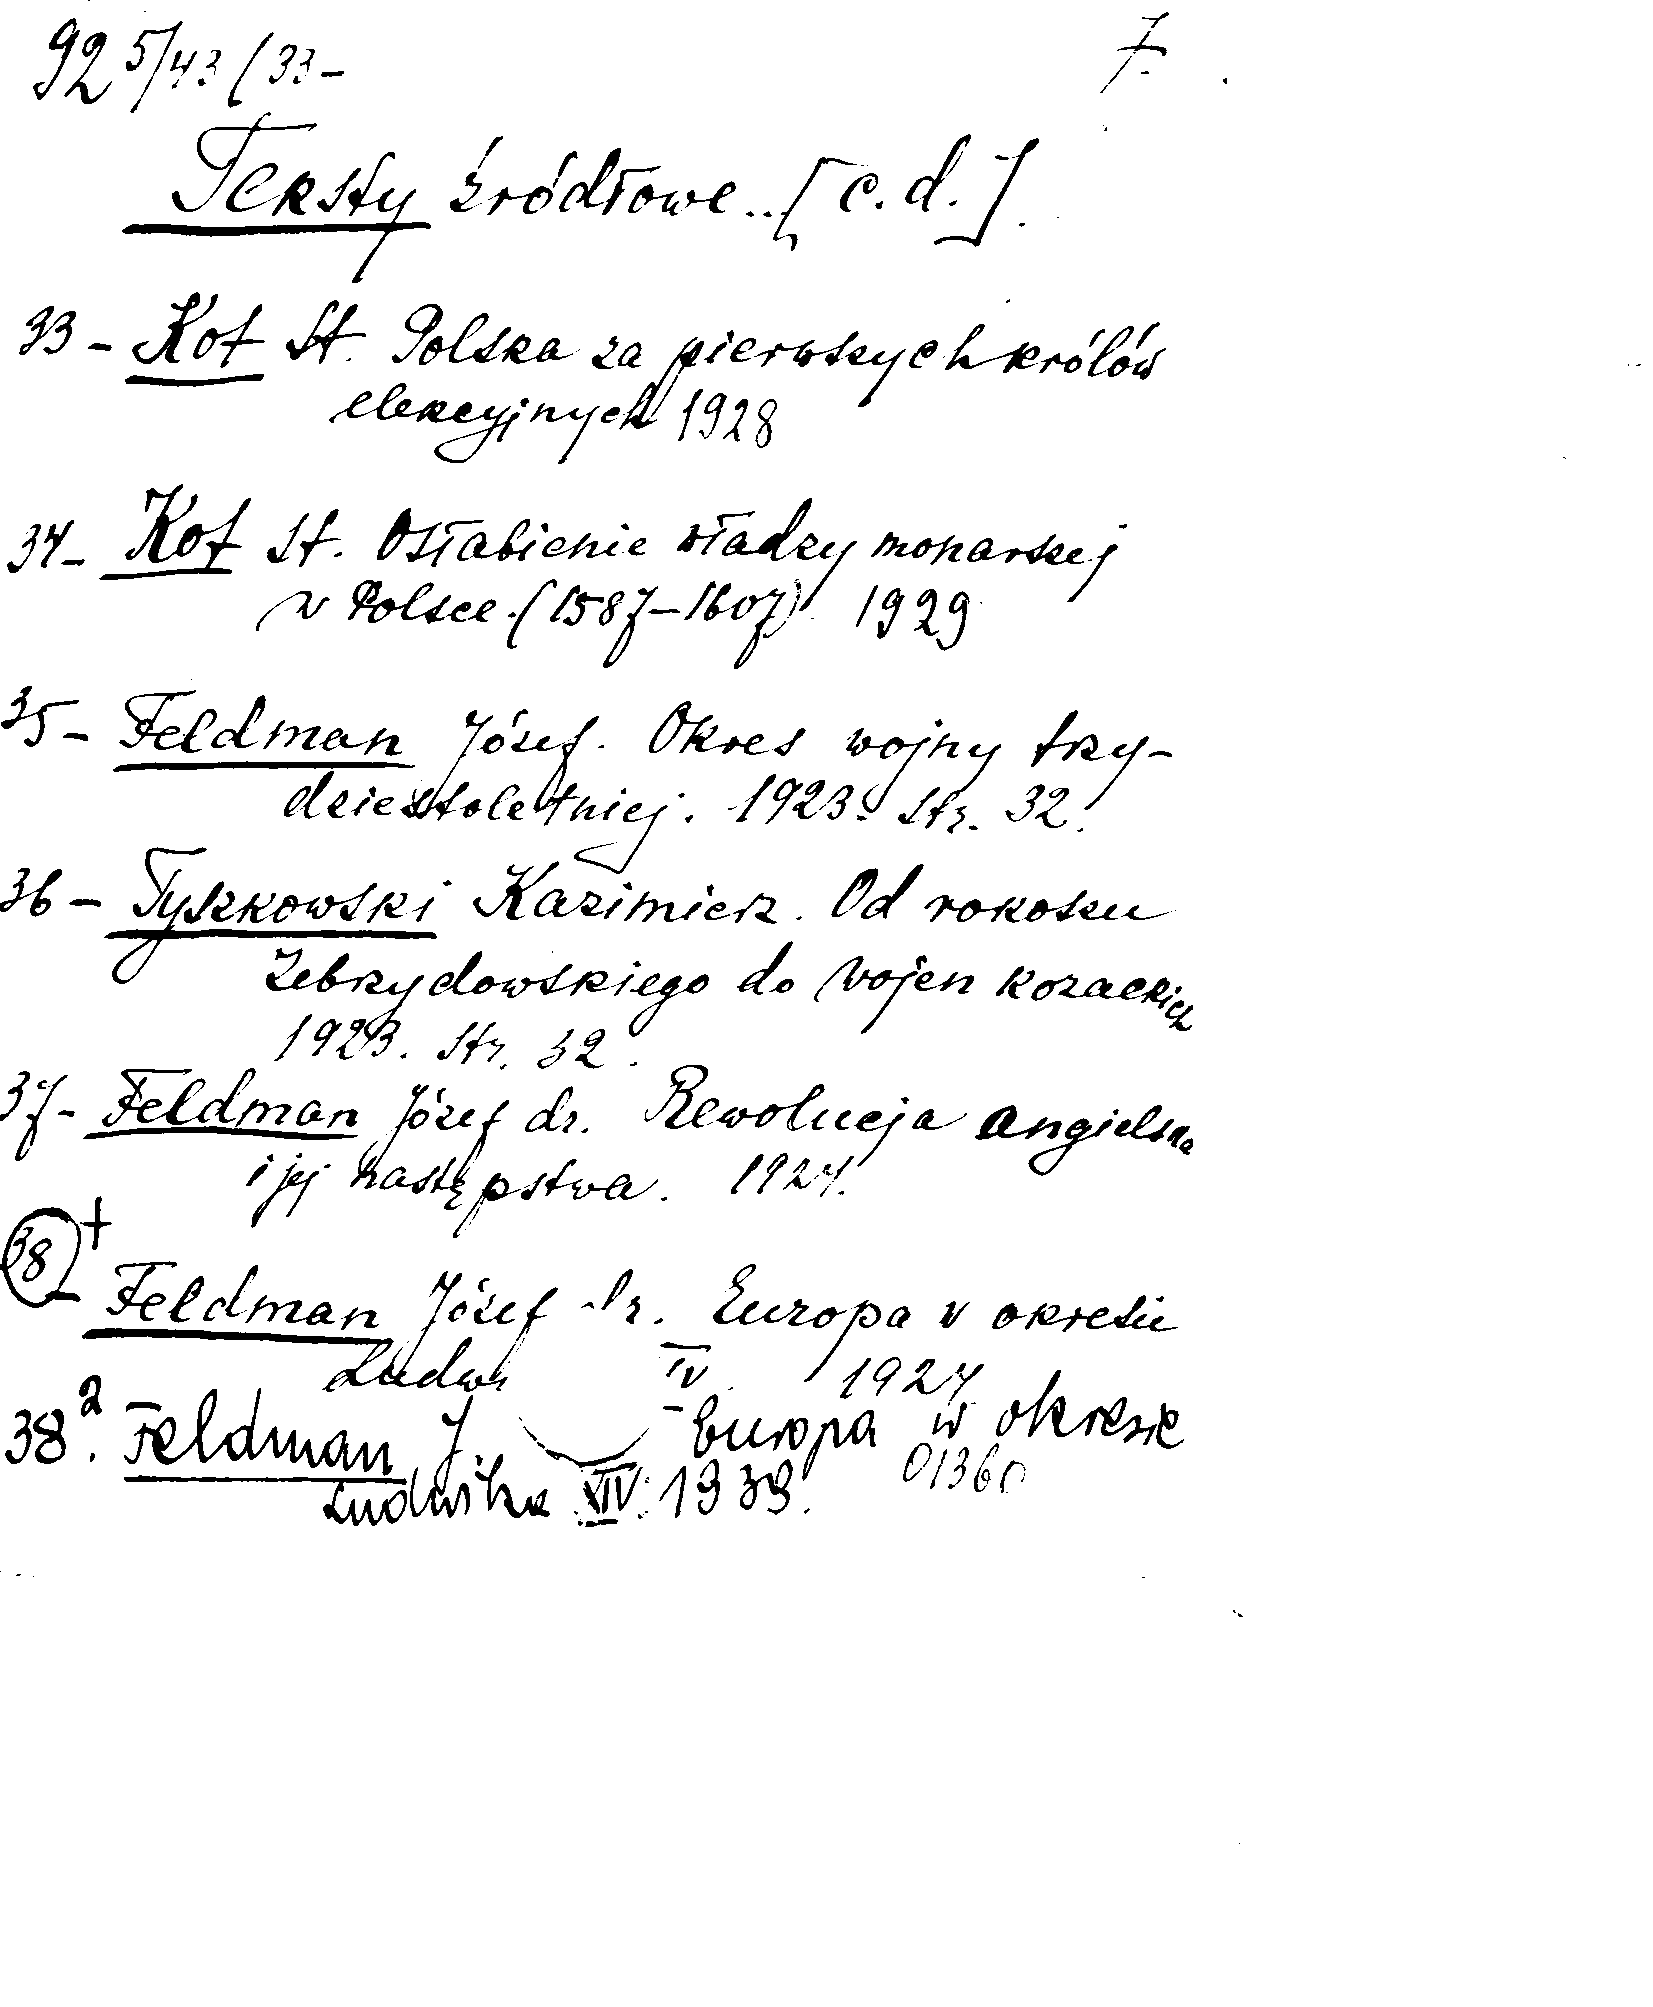 92 5/43 / 33-
7.
Teksty źródłowe .. [c. d.].
33 - Kot St. Polska za pierwszych królów
elekcyjnych 1928
34 - Kot St. Osłabienie władzy monarszej
w Polsce. (1587-1607) 1929
35 - Feldman Józef. Okres wojny trzy-
dziestoletniej. 1923. str. 32.
36 - Tyszkowski Kazimierz. Od rokoszu
Zebrzydowskiego do wojen kozackich
1923. str. 32.
37 - Feldman Józef dr. Rewolucja angielska
i jej następstwa. 1924.
38 +
- Feldman Józef dr. Europa w okresie
Ludw IV 1924
38a. Feldman J. Europa w okresie
Ludwika XIV. 1939. 01360